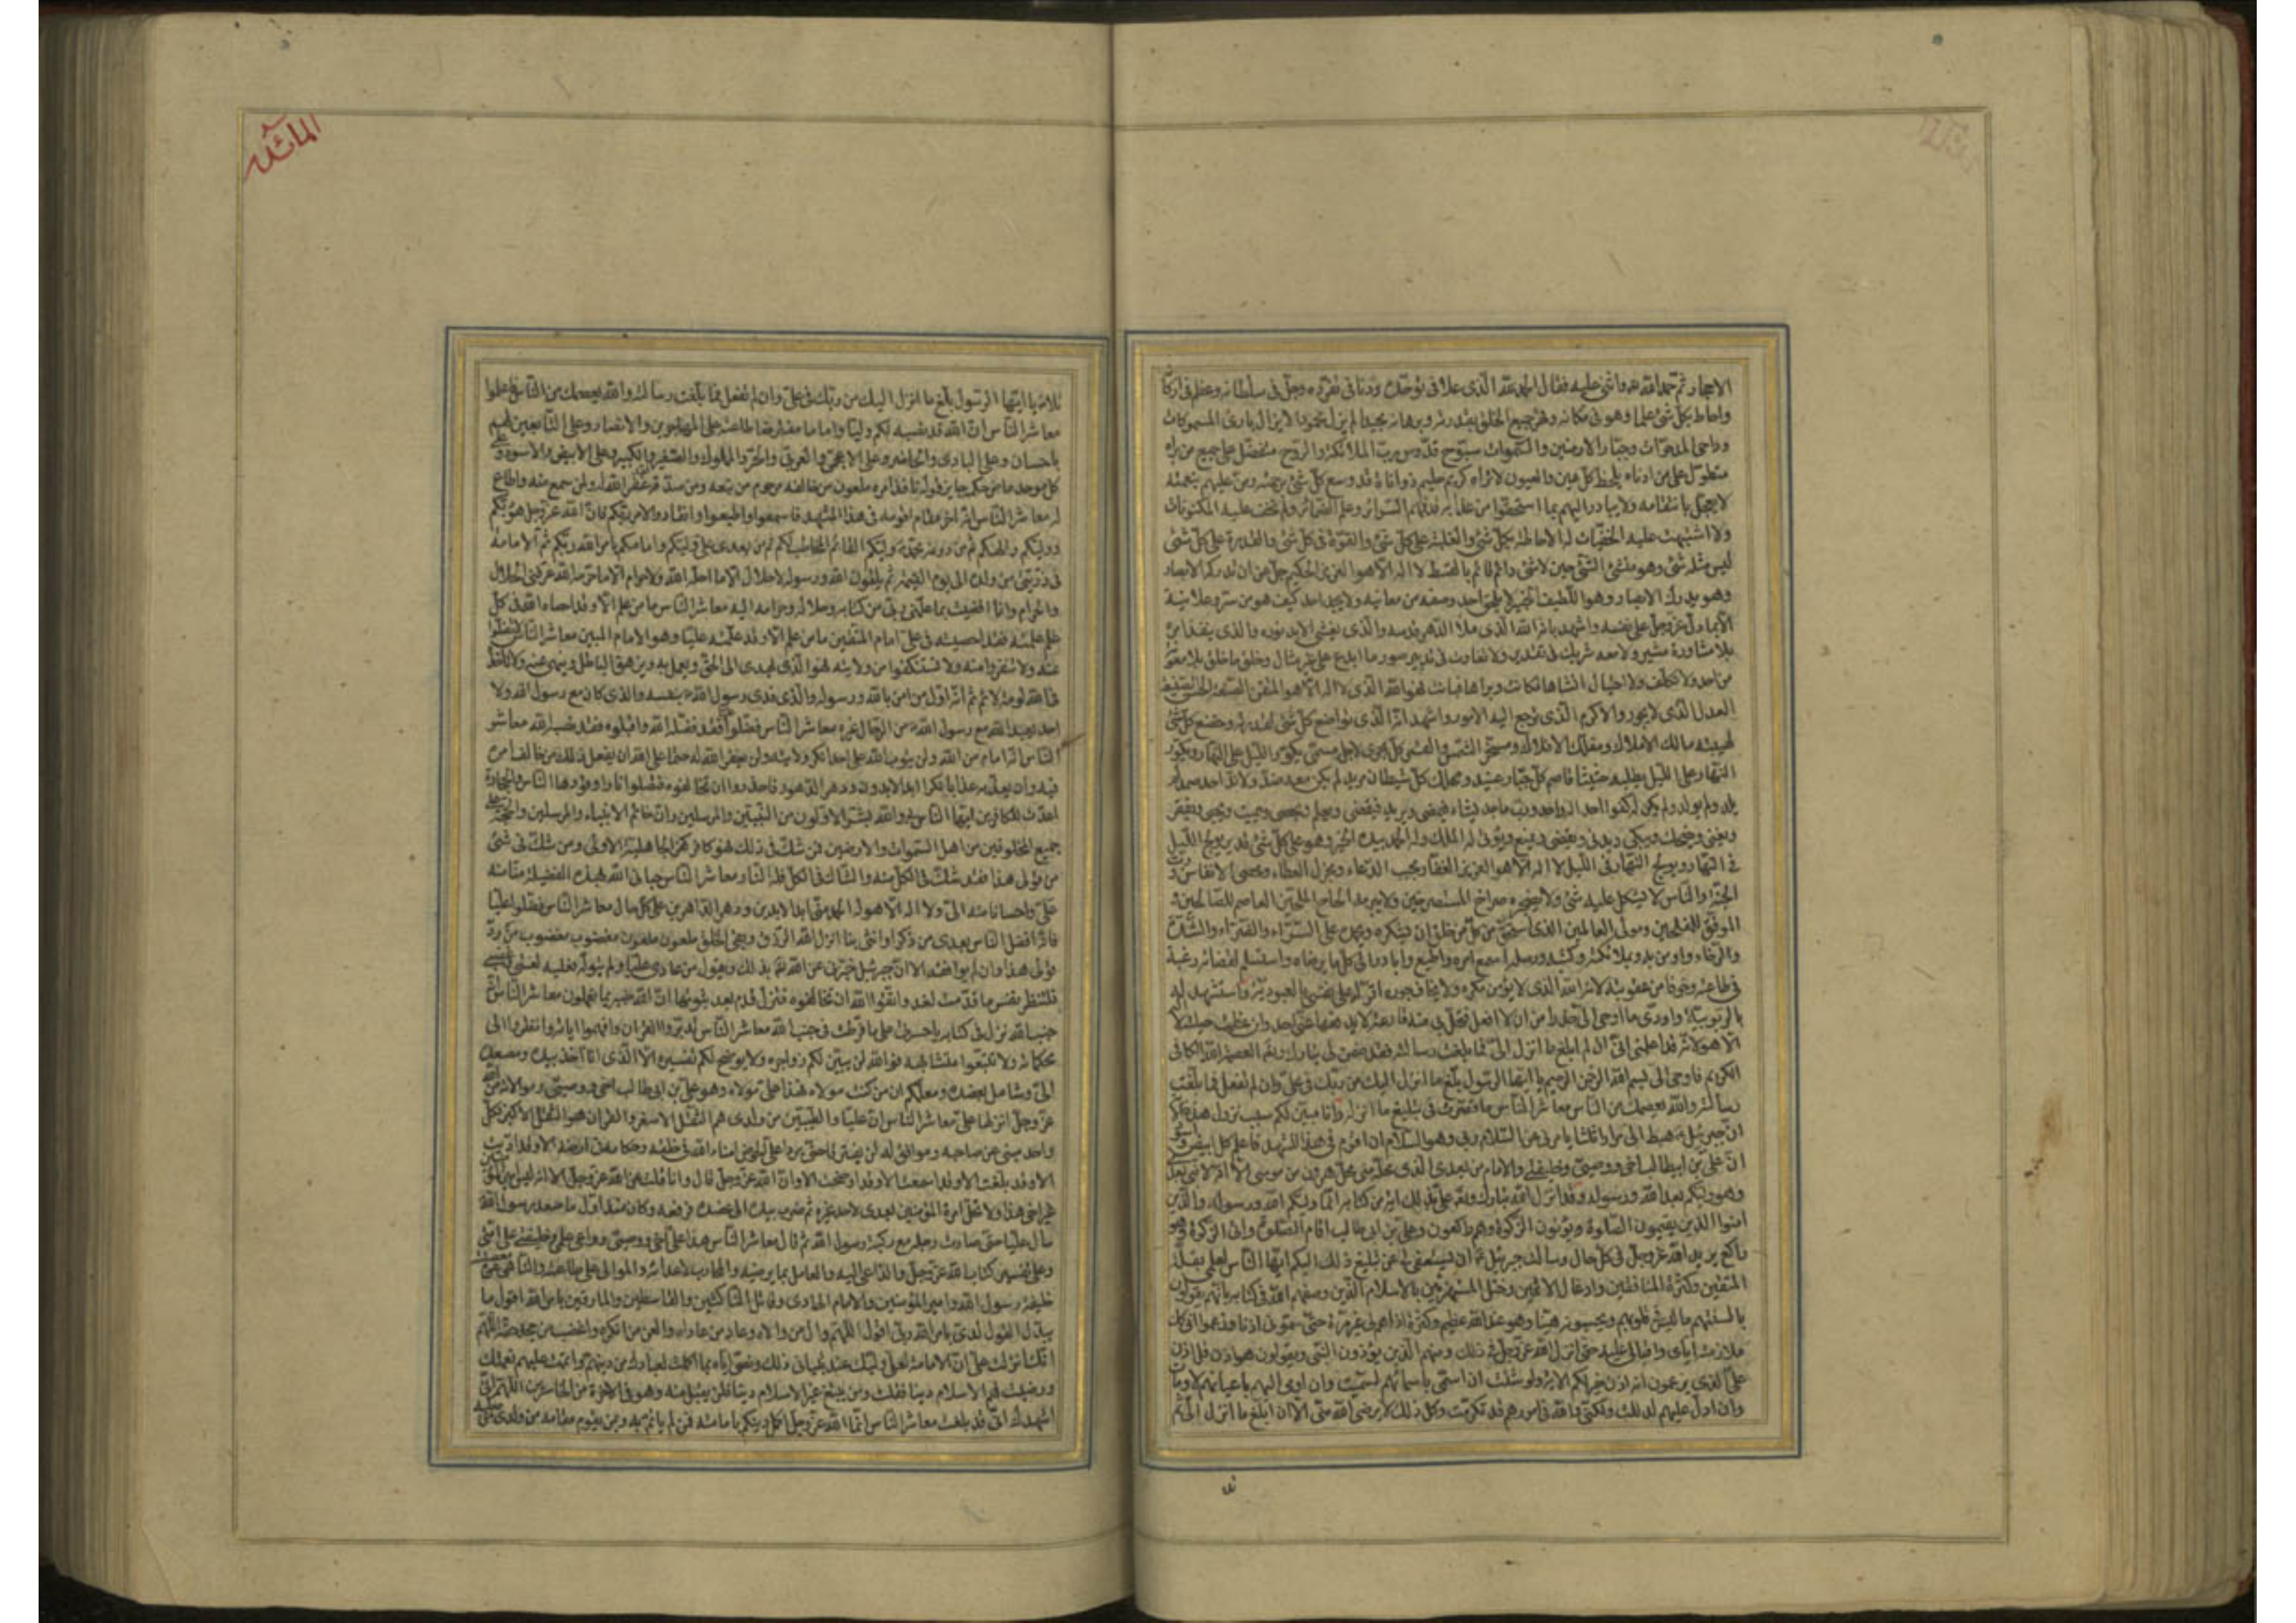 الاحجار ثم حمد الله واثنى عليه فقال الحمد لله الذى علا فى توحّده ودنا فى تفرّده وجلّ فى سلطانه وعظم فى اركانه
واحاط بكل شئ علما وهو فى مكانه وقهر جميع الخلق بقدرته وبرهانه مجيدا لم يزل محمودا لا يزال بارئ المسموكات
وداحى المدحوّات وجبّار الارضين والسموات سبّوح قدّوس ربّ الملائكة والروح متفضّل على جميع من براه
متطول على من ادناه يلحظ كل عين والعيون لا تراه كريم حليم ذو اناة قد وسع كلّ شئ برحمته ومنّ عليهم بنعمته
لا يعجل بانتقامه ولا يبادر اليهم بما استحقوا من عذابه قد فهم السرائر وعلم الضمائر ولم تخف عليه المكنونات
ولا اشتبهت عليه الخفيّات له الاحاطة بكلّ شئ والغلبة على كلّ شئ والقوّة فى كل شئ والقدرة على كلّ شئ
ليس مثله شئ وهو منشئ الشئ حين لا شئ دائم قائم بالقسط لا اله الا هو العزيز الحكيم جلّ من ان تدركه الابصار
وهو يدرك الابصار وهو اللّطيف الخبير لا يلحق احد وصفه من معاينة ولا يجد احد كيف هو من سرّ وعلانية
الا بما دلّ عزّ وجلّ على نفسه واشهد بانه الله الذى ملأ الدهر قدسه والذى يغشى الابد نوره والذى ينفذ امره
بلا مشاورة مشير ولا معه شريك فى تقدير ولا تفاوت فى تدبير صور ما ابدع على غير مثال وخلق ما خلق بلا معونة
من احد ولا تكلّف ولا احتيال انشاها فكانت وبراها فبانت فهو الله الذى لا اله الّا هو المتقن الصنعة الحسن الصنيعة
العدل الذى لا يجور والاكرم الذى ترجع اليه الامور واشهد انه الذى تواضع كلّ شئ لقدرته وخضع كل شئ
لهيبته مالك الاملاك ومفلّك الافلاك ومسخّر الشمس والقمر كلّ يجرى لاجل مسمّى يكوّر اللّيل على النّهار ويكوّر
النّهار على اللّيل يطلبه حثيثا قاصم كلّ جبّار عنيد ومهلك كلّ شيطان مريد لم يكن معه ضدّ ولا ندّ احد صمد لم
يلد ولم يولد ولم يكن له كفوا احد اله واحد وربّ ماجد يشاء فيمضى ويريد فيقضى ويعلم ويحصى ويميت ويحيى ويفقر
ويغنى ويضحك ويبكى ويدنى ويقصى ويمنع ويؤتى له الملك وله الحمد بيده الخير وهو على كلّ شئ قدير يولج اللّيل
فى النّهار ويولج النّهار فى اللّيل لا اله الّا هو العزيز الغفّار مجيب الدّعاء ومجزل العطاء ومحصى الانفاس وربّ
الجنّة والنّاس لا يشكل عليه شئ ولا يضجره صراخ المستصرخين ولا يبرمه الحاح الملحّين العاصم للصّالحين و
الموفّق للمفلحين ومولى العالمين الذى استحقّ من كلّ من خلق ان يشكره ويحمده على السّرّاء والضّرّاء والشّدّة
والرّخاء واومن به وبملائكته وكتبه ورسله اسمع امره واطيع وابادر الى كل ما يرضاه واستسلم لقضائه رغبة
فى طاعته وخوفا من عقوبته لانه الله الذى لا يؤمن مكره ولا يخاف جوره اقرّ له على نفسى بالعبودية واشهد له
بالربوبية واودّى ما اوحى الىّ حذرا من ان لا افعل فتحلّ بى منه قارعة لا يدفعها عنّى احد وان عظمت حيلته لا اله
الّا هو لانه قد اعلمنى انى ان لم ابلغ ما انزل الىّ فما بلغت رسالته فقد ضمن لى تبارك وتعالى العصمة وهو الله الكافى
الكريم فاوحى الىّ بسم الله الرحمن الرحيم يا ايها الرسول بلّغ ما انزل اليك من ربّك فى علىّ وان لم تفعل فما بلّغت
رسالته والله يعصمك من الناس معاشر النّاس ما قصّرت فى تبليغ ما انزله وانا مبيّن لكم سبب نزول هذه الاية
انّ جبرئيل هبط الىّ مرارا ثلثا يامرنى عن السّلام ربّى وهو السّلام ان اقوم فى هذا المشهد فاعلم كل ابيض واسود
انّ علىّ بن ابيطالب اخى ووصيّى وخليفتى والامام من بعدى الذى محلّه منّى محلّ هرون من موسى الّا انه لا نبىّ بعدى
وهو وليّكم بعد الله ورسوله وقد انزل الله تبارك وتعالى علىّ بذلك اية من كتابه انّما وليّكم الله ورسوله والّذين
امنوا الّذين يقيمون الصّلوة ويؤتون الزّكوة وهم راكعون وعلىّ بن ابى طالب اقام الصّلوة واتى الزّكوة وهو
راكع يريد الله عزّ وجلّ فى كلّ حال وسالت جبرئيل ان يستعفى لى عن تبليغ ذلك اليكم ايها النّاس لعلمى بقلّة
المتّقين وكثرة المنافقين وادغال الاثمين وختل المستهزئين بالاسلام الّذين وصفهم الله فى كتابه بانّهم يقولون
بالسنتهم ما ليس فى قلوبهم ويحسبونه هيّنا وهو عند الله عظيم وكثرة اذاهم لى غير مرّة حتّى سمّونى اذنا وزعموا انى كذلك
ملازمته ايّاى واقبالى عليه حتّى انزل الله عزّ وجلّ فى ذلك ومنهم الّذين يؤذون النّبىّ ويقولون هو اذن قل اذن
على الّذين يزعمون انه اذن خير لكم الاية ولو شئت ان اسمّى باسمائهم لسمّيت وان اومى اليهم باعيانهم لاومات
وان ادلّ عليهم لدللت ولكنّى والله فى امورهم قد تكرّمت وكل ذلك لا يرضى الله منّى الا ان ابلّغ ما انزل الىّ ثم
المائدة
تلا يا ايّها الرّسول بلّغ ما انزل اليك من ربّك فى علىّ وان لم تفعل فما بلّغت رسالته والله يعصمك من النّاس فاعلموا
معاشر النّاس انّ الله قد نصبه لكم وليّا واماما مفترضا طاعته على المهاجرين والانصار وعلى التّابعين لهم
باحسان وعلى البادى والحاضر وعلى الاعجمىّ والعربىّ والحرّ والمملوك والصّغير والكبير وعلى الابيض والاسود وعلى
كل موحد ماض حكمه جايز قوله نافذ امره ملعون من خالفه مرحوم من تبعه ومن صدّقه غفر الله له ولمن سمع منه واطاع
له معاشر النّاس انه اخر مقام اقومه فى هذا المشهد فاسمعوا واطيعوا وانقادوا لامر ربّكم فانّ الله عزّ وجل هو ربّكم
ووليّكم والهكم ثم من دونه محمد وليّكم القائم المخاطب لكم ثم من بعدى علىّ وليّكم وامامكم بامر الله ربّكم ثم الامامة
فى ذرّيّتى من ولده الى يوم القيمة يوم يلقون الله ورسوله لا حلال الّا ما احلّه الله ولا حرام الّا ما حرّمه الله عرّفنى الحلال
والحرام وانا افضيت بما علّمنى ربّى من كتابه وحلاله وحرامه اليه معاشر النّاس ما من علم الّا وقد احصاه الله فىّ وكلّ
علم علّمته فقد احصيته فى علىّ امام المتّقين ما من علم الّا وقد علّمته عليّا وهو الامام المبين معاشر النّاس لا تضلّوا
عنه ولا تنفروا منه ولا تستنكفوا من ولايته فهو الّذى يهدى الى الحقّ ويعمل به ويزهق الباطل وينهى عنه ولا تاخذه
فى الله لومة لائم ثم انه اول من امن بالله ورسوله والذى فدى رسول الله بنفسه والذى كان مع رسول الله ولا
احد يعبد الله مع رسول الله من الرّجال غيره معاشر النّاس فضّلوه فقد فضّله الله واقبلوه فقد نصبه الله معاشر
النّاس انه امام من الله ولن يتوب الله على احد انكر ولايته ولن يغفر الله له حتما على الله ان يفعل ذلك بمن خالف امره
فيه وان يعذّبه عذابا نكرا ابد الاباد ودهر الدّهور فاحذروا ان تخالفوه فتصلوا نارا وقودها النّاس والحجارة
اعدّت للكافرين ايّها النّاس بى والله بشّر الاوّلون من النّبيّين والمرسلين وانا خاتم الانبياء والمرسلين والحجّة على
جميع المخلوقين من اهل السّموات والارضين فمن شكّ فى ذلك فهو كافر كفر الجاهلية الاولى ومن شكّ فى شئ
من قولى هذا فقد شكّ فى الكلّ منه والشّاك فى الكل فله النّار معاشر النّاس حبانى الله بهذه الفضيلة منّا منه
علىّ واحسانا منه الىّ ولا اله الّا هو له الحمد منّى ابد الابدين ودهر الدّاهرين على كلّ حال معاشر النّاس فضّلوا عليّا
فانّه افضل النّاس بعدى من ذكر او انثى بنا انزل الله الرّزق وبقى الخلق ملعون ملعون مغضوب مغضوب من ردّ
قولى هذا وان لم يوافقه الا انّ جبرئيل خبّرنى عن الله تعالى بذلك ويقول من عادى عليّا ولم يتولّه فعليه لعنتى وغضبى
فلتنظر نفس ما قدّمت لغد واتّقوا الله ان تخالفوه فتزلّ قدم بعد ثبوتها انّ الله خبير بما تعملون معاشر النّاس انه
جنب الله نزل فى كتابه يا حسرتى على ما فرّطت فى جنب الله معاشر النّاس تدبّروا القران وافهموا اياته وانظروا الى
محكماته ولا تتّبعوا متشابهه فوالله لن يبيّن لكم زواجره ولا يوضح لكم تفسيره الّا الّذى انا اخذ بيده ومصعده
الىّ وشائل بعضده ومعلّمكم ان من كنت مولاه فهذا علىّ مولاه وهو علىّ بن ابى طالب اخى ووصيّى وموالاته من الله
عزّ وجلّ انزلها علىّ معاشر النّاس انّ عليّا والطّيّبين من ولدى هم الثّقل الاصغر والقران هو الثّقل الاكبر فكلّ
واحد مبنى عن صاحبه وموافق له لن يفترقا حتّى يردا علىّ الحوض امناء الله فى خلقه وحكّامه فى ارضه الا وقد ادّيت
الا وقد بلّغت الا وقد اسمعت الا وقد اوضحت الا وانّ الله عزّ وجلّ قال وانا قلت عن الله عزّ وجلّ الا انه ليس امير المؤمنين
غير اخى هذا ولا تحلّ امرة المؤمنين بعدى لاحد غيره ثم ضرب بيده الى عضده فرفعه وكان منذ اوّل ما صعد رسول الله
شال عليّا حتّى صارت رجله مع ركبة رسول الله ثم قال معاشر النّاس هذا علىّ اخى ووصيّى وواعى علمى وخليفتى على امّتى
وعلى تفسير كتاب الله عزّ وجلّ والدّاعى اليه والعامل بما يرضيه والمحارب لاعدائه والموالى على طاعته والنّاهى عن معصيته
خليفة رسول الله وامير المؤمنين والامام الهادى وقاتل النّاكثين والقاسطين والمارقين بامر الله اقول ما
يبدّل القول لدىّ بامر الله ربّى اقول اللّهمّ وال من والاه وعاد من عاداه والعن من انكره واغضب من جحد حقّه اللّهمّ
انّك انزلت علىّ انّ الامامة لعلىّ وليّك عند تبيانى ذلك ونصبى ايّاه بما اكملت لعبادك من دينهم واتممت عليهم نعمتك
ورضيت لهم الاسلام دينا فقلت ومن يبتغ غير الاسلام دينا فلن يقبل منه وهو فى الاخرة من الخاسرين اللّهمّ انّى
اشهدك انّى قد بلّغت معاشر النّاس انّما الله عزّ وجلّ اكمل دينكم بامامته فمن لم ياتمّ به وبمن يقوم مقامه من ولدى من صلبه